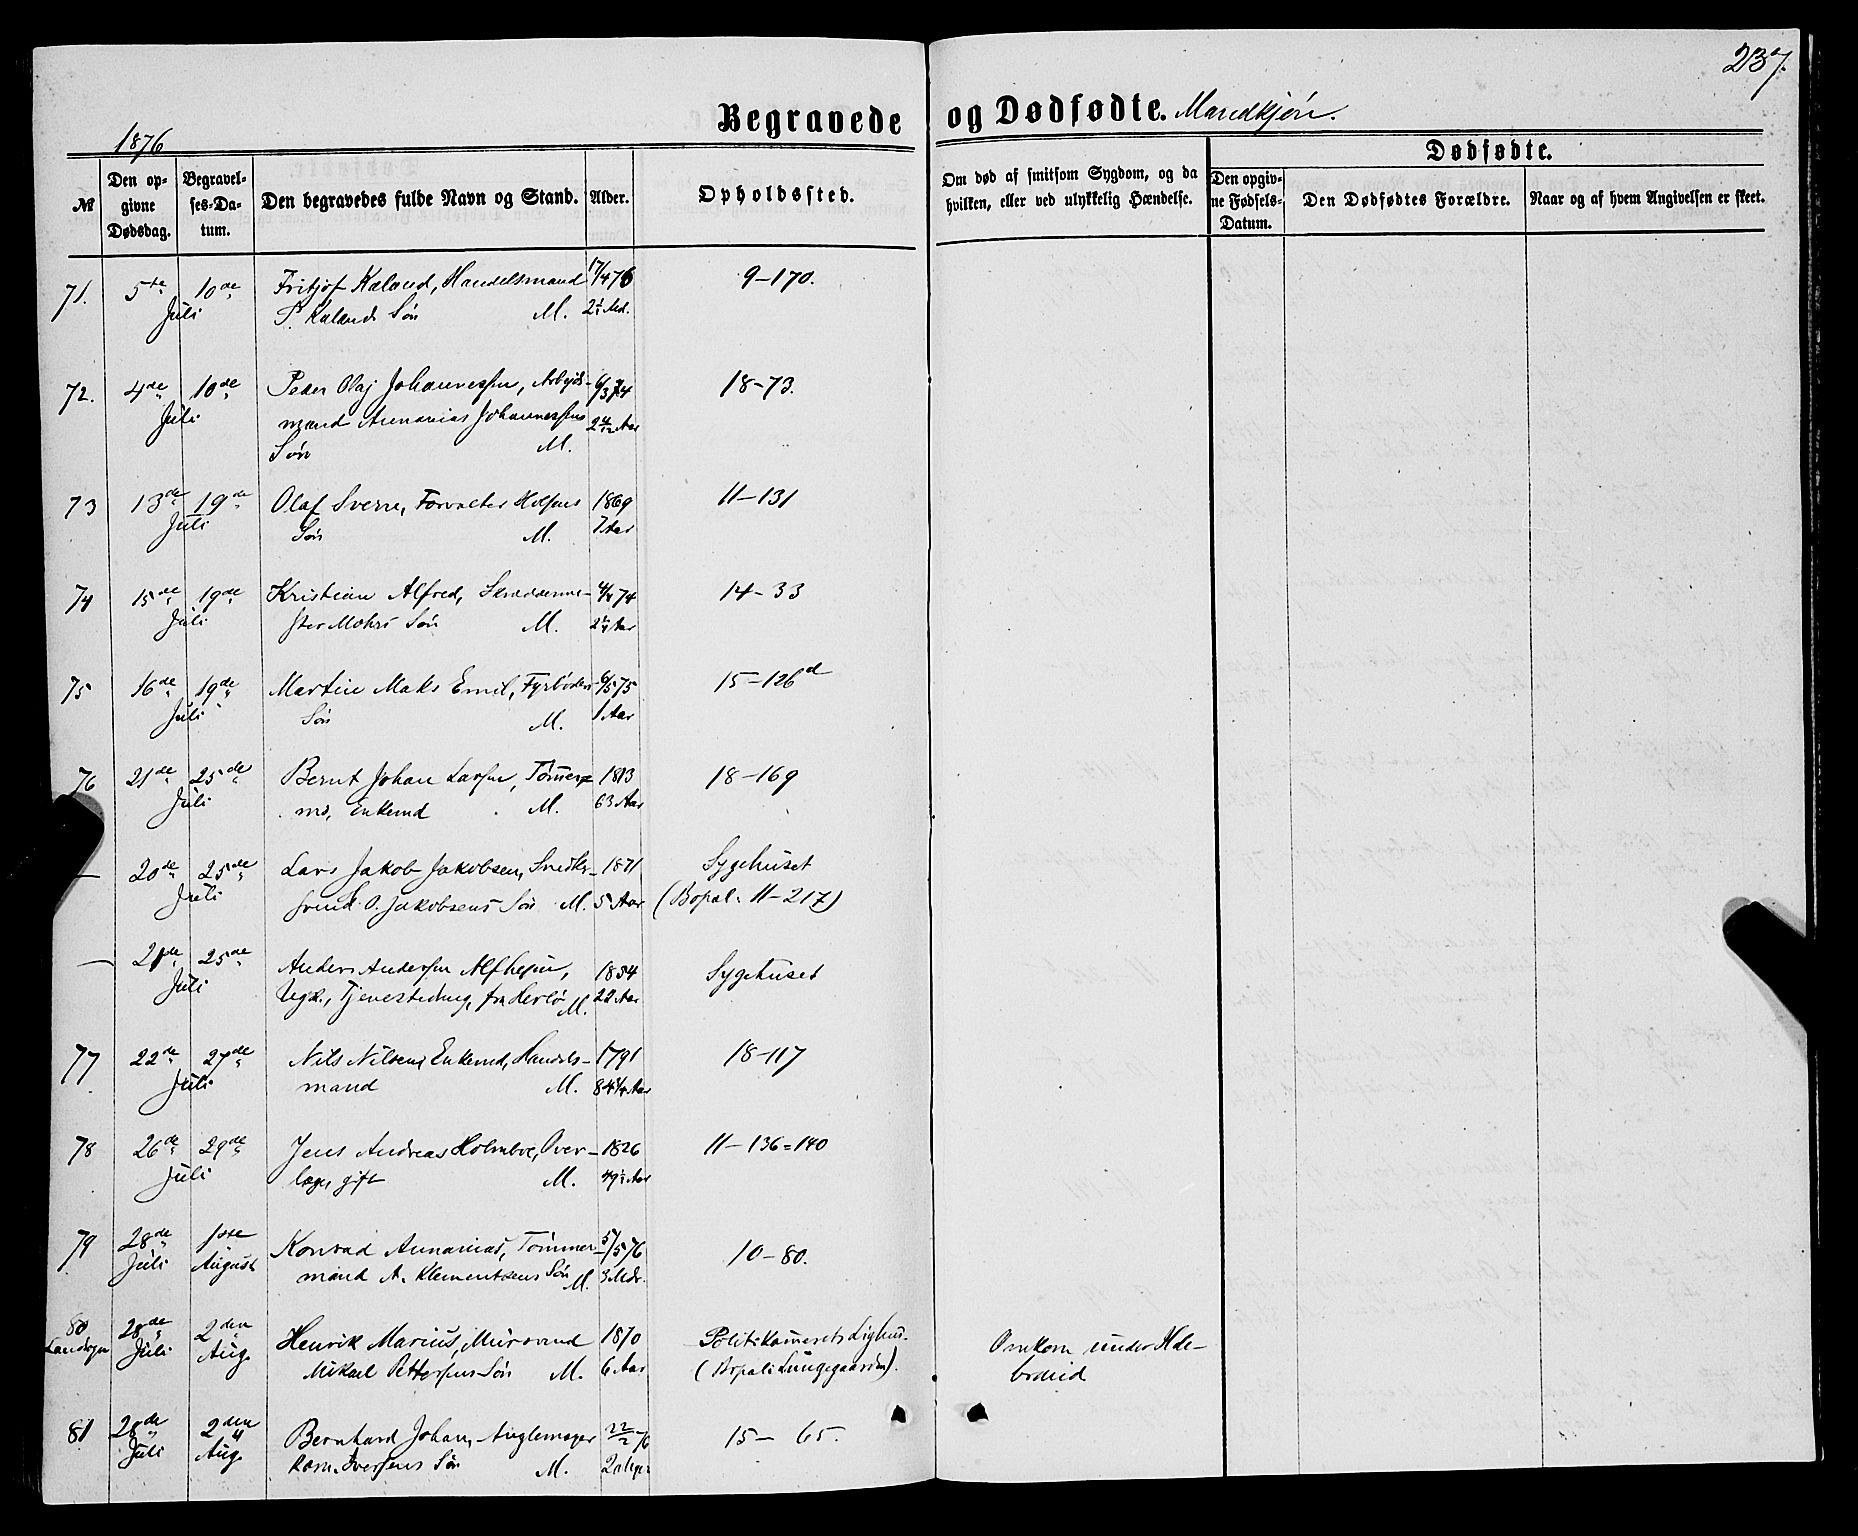 237.
Begravede og Dødfødte. Mandkjøn.
1876
Dødfødte.
№
Den opgivne Dødsdag.
Begravelses-Datum.
Den begravedes fulde Navn og Stand.
Alder.
Opholdssted.
Om død af smitsom Sygdom, og da hvilken, eller ved ulykkelig Hændelse.
Den opgivne Fødsels-Datum.
Den Dødfødtes Forældre.
Naar og af hvem Angivelsen er skeet.
71. 5te 10de Fritjof Kaland, Handelsmand 17/4 76 9-170.
Juli S. Kalands Søn M. 2½ Md.
72. 4de 10de Peder Olaj Johannessen, Arbejds- 6/3 74 18-73.
Juli mand Annanias Johannessens 2 4/12 Aar
Søn M.
73 13de 19de Olaf Sverre, Forvalter 1869 11-131
Juli Søn M. 7 Aar
74 15de 19de Kristian Alfred, Skræddermе- 4/4 74 14-33
Juli ster Mohrs Søn M. 2¼ Aar
75 16de 19de Martin Maks Emil, Fyrbøders 6/5 75 15-126d
Juli Søn M. 1 Aar
76 21de 25de Bernt Johan Larsen, Tømmer- 1813 18-169
Juli md, Enkemd M. 63 Aar
— 20de 25de Lars Jakob Jakobsen, Snedker- 1871 Sygehuset
Juli svend O. Jakobsens Søn M. 5 Aar (Bopæl: 11-217)
— 21de 25de Anders Andersen 1854 Sygehuset
Juli Ugk., Tjenestedreng, fra Herlø M. 22 Aar
77 22de 27de Nils Nilsen, Enkemd, Handels- 1791 18-117
Juli mand M. 84¾ Aar
78 26de 29de Jens Andreas Holmboe, Over- 1826 11-136=140
Juli læge, gift M. 49½ Aar
79 28de 1ste Konrad Annanias, Tømmer- 5/5 76 10-80.
Juli August mand A. Klementsens Søn M. 3 Mdr.
80 28de 2den Henrik Marius, Mursvend 1870 Politikamerets Lighus. Omkom under Ilde-
Landsogn Juli Aug. Mikael Pettersens Søn M. 6 Aar (Bopæl: Lungegaarden). brand
81 28de 2den Bernhard Johan, Anglemager 22/2 76 15-65.
Juli Aug. Iversens Søn M.